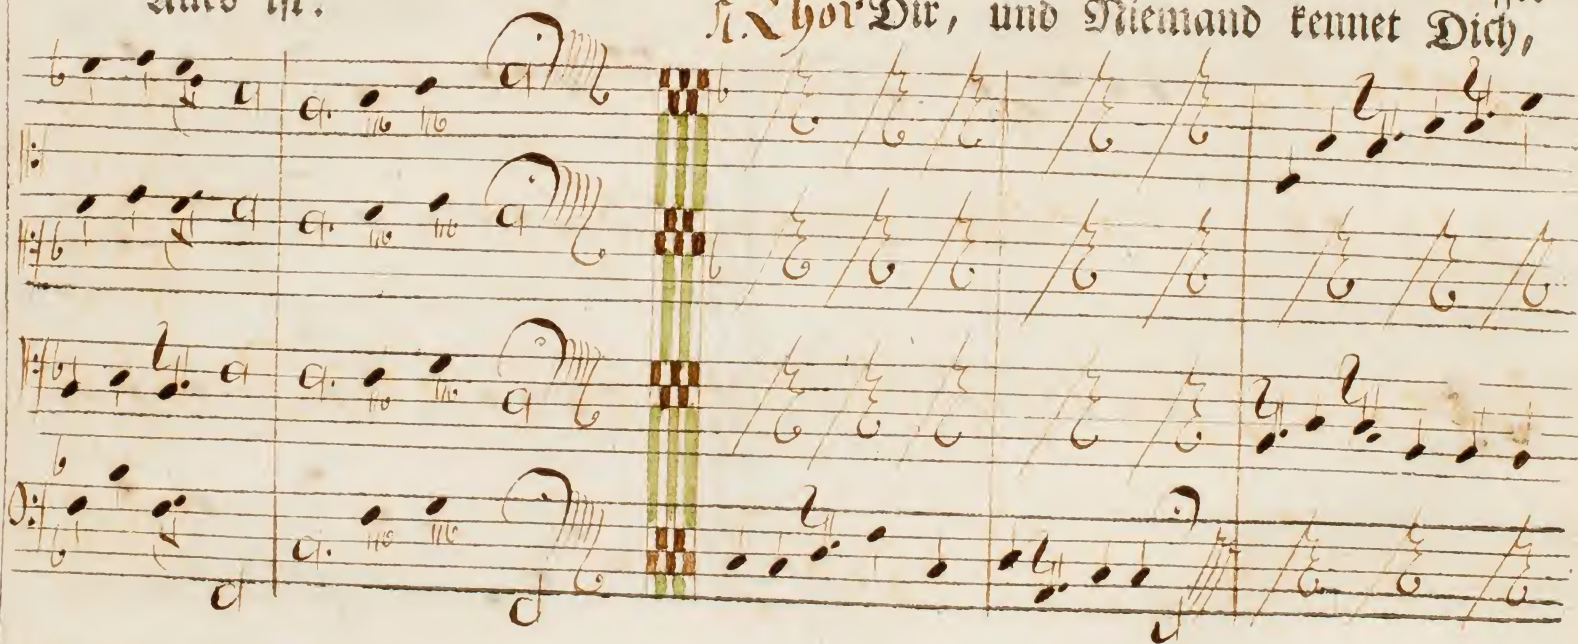 Alles ist.
A. Chor Dir, und Niemand kennet Dich,